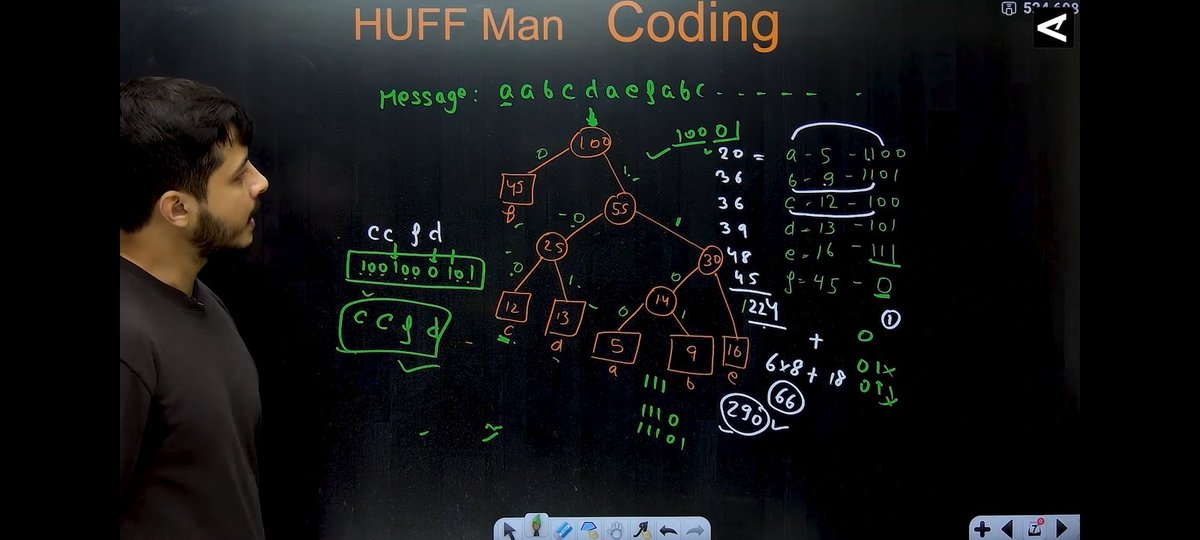 HUFF Man Coding
Message: a a b c d a e f a b c - - - - - .
100 01
100
0 1
45
f
55
0 1
25
30
0 1
0 1
12
c
13
d
14
16
e
0 1
5
a
9
b
111
1110
11101
cc f d
100100 0 101
c c f d
20 =
36
36
39
48
45
224
a - 5 - 1100
b - 9 - 1101
c - 12 - 100
d - 13 - 101
e - 16 - 111
f - 45 - 0
1
+
6x8 + 18
66
290
0
01x
011